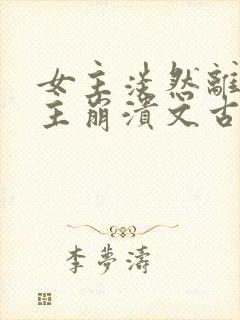 女主淡然離
主崩潰文古
李夢濤